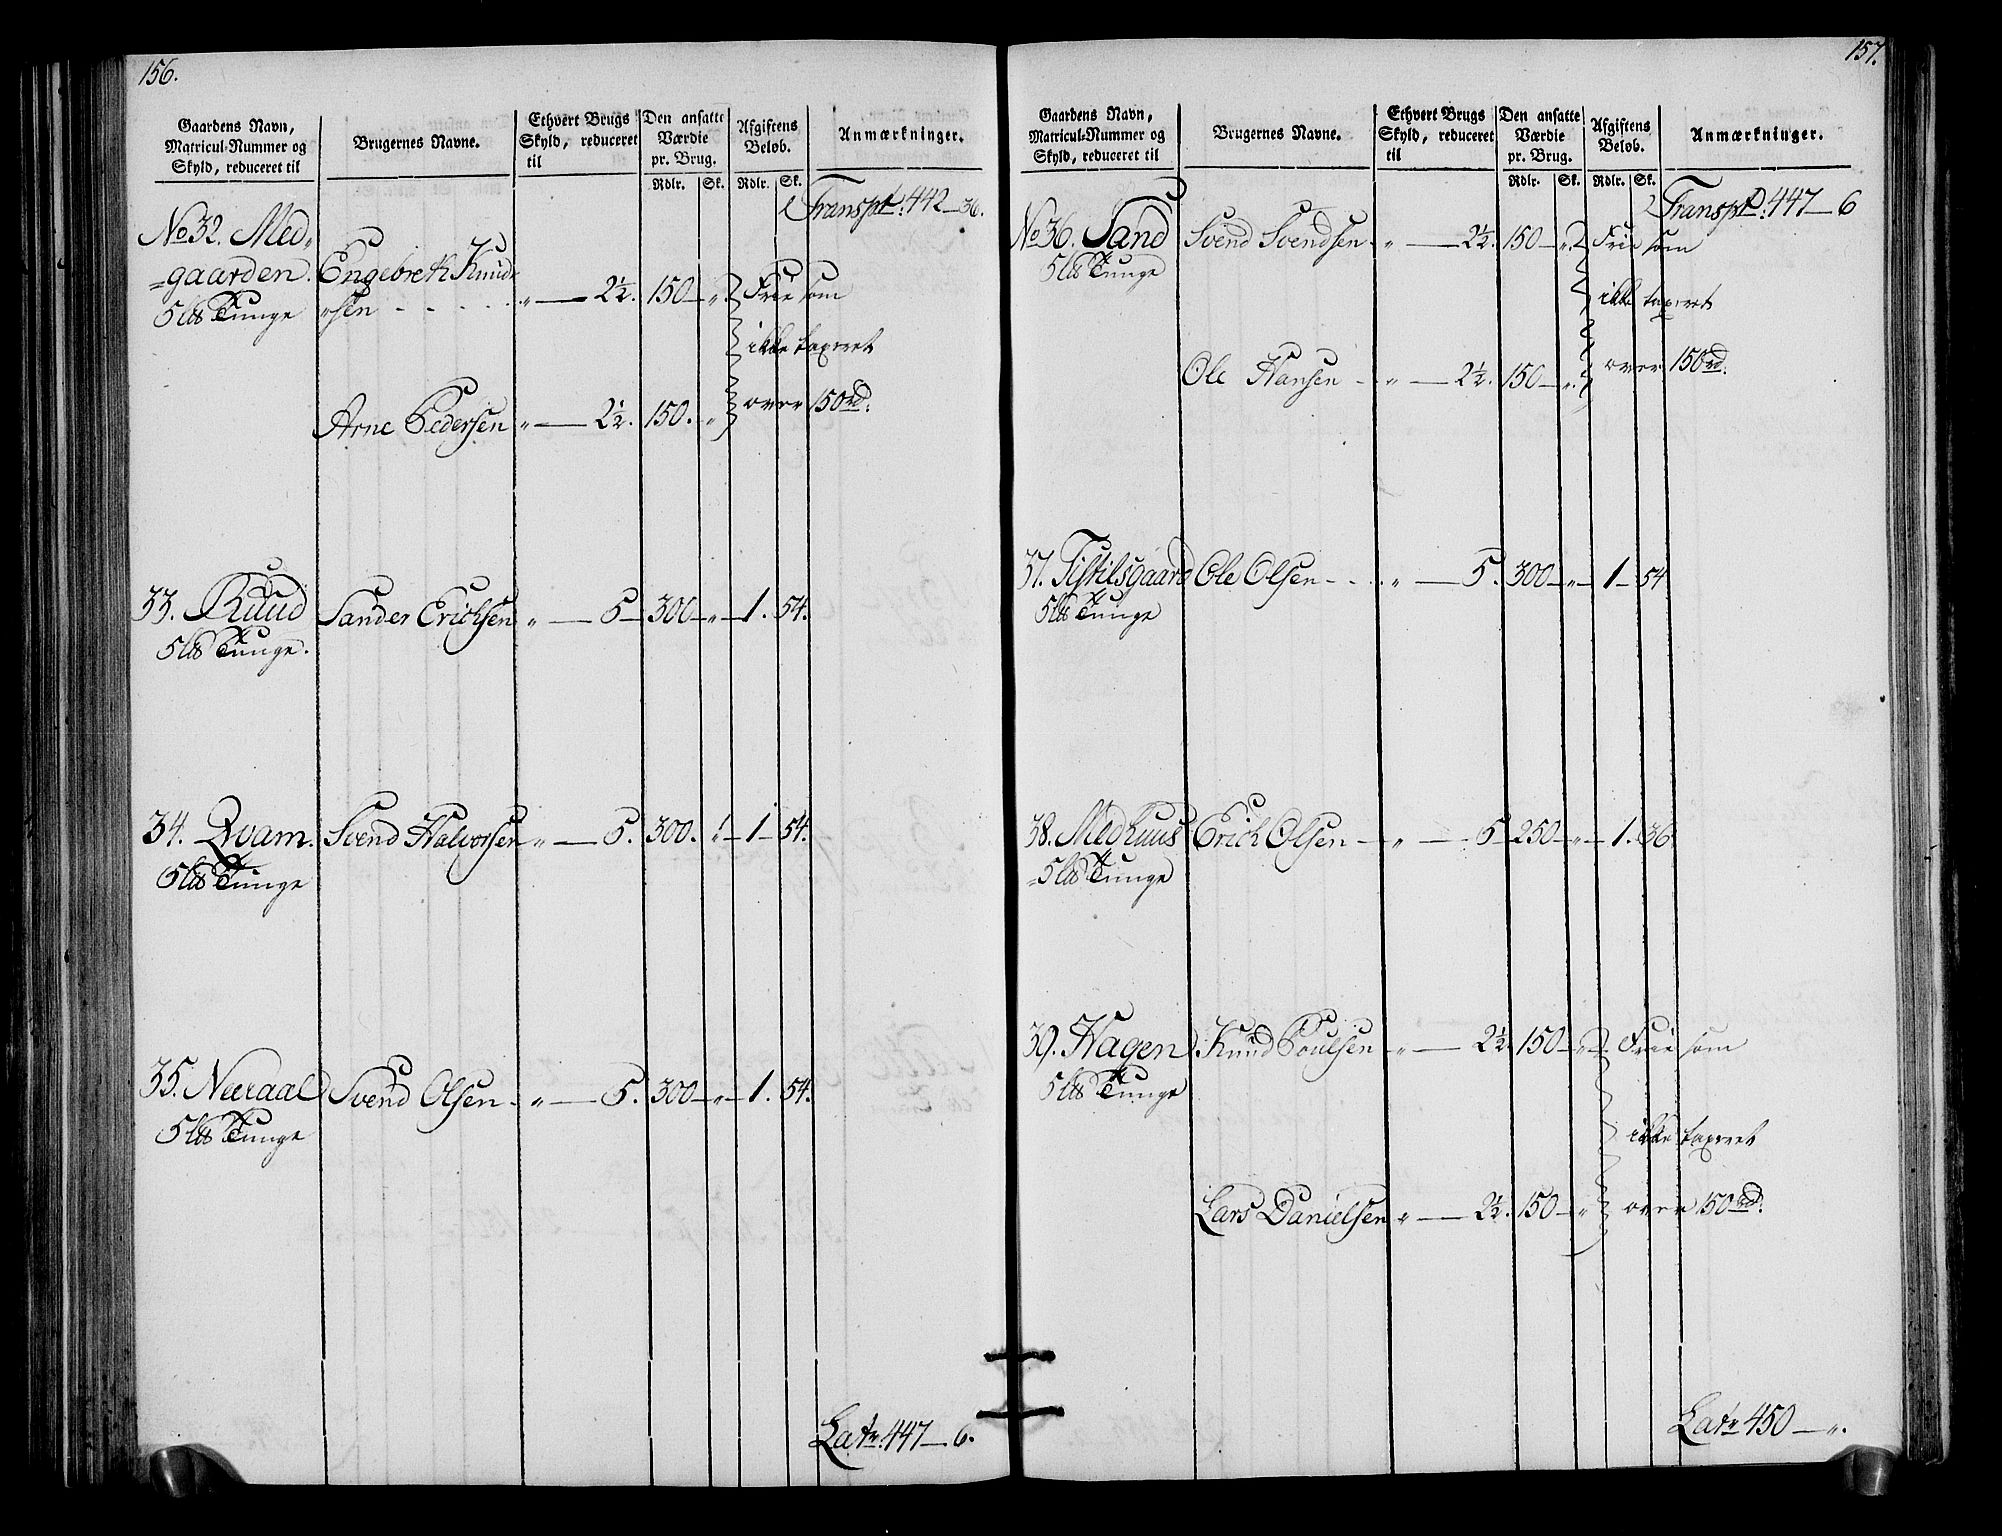 156.
Gaardens Navn, Matricul-Nummer og Skyld, reduceret til
Brugernes Navne.
Ethvert Brugs Skyld, reduceret til
Den ansatte Værdie pr. Brug.
Afgiftens Beløb.
Anmærkninger.
Rdlr. Sk. Rdlr. Sk.
Transpt: 442 — 36.
No 32. Med-
=gaarden Engebreth Knud-
5 Tunge =sen - - - - - „ — 2½. 150 — „ Frie som
ikke taxeret
Arne Pedersen „ — 2½. 150. „ over 150 rd:
33. Ruud Sander Erichsen „ — 5 — 300 — „ — 1. 54.
5 Tunge.
34. Qvam. Svend Halvorsen „ — 5. 300. „ — 1 — 54.
5 Tunge
35. Neeraal Svend Olsen. „ — 5. 300 — „ — 1. 54.
5 Tunge
Lat. 447 — 6.
157.
Gaardens Navn, Matricul-Nummer og Skyld, reduceret til
Brugernes Navne.
Ethvert Brugs Skyld, reduceret til
Den ansatte Værdie pr. Brug.
Afgiftens Beløb.
Anmærkninger.
Rdlr. Sk. Rdlr. Sk.
Transpt: 447 — 6
No 36. Sand Svend Svendsen „ — 2½. 150 — „ Frie som
5 Tunge
ikke taxeret
Ole Hansen — „ — 2½. 150 — „ over 150 rd.
37. Tistilsgaard Ole Olsen - - . „ — 5. 300 — „ — 1 — 54
5 Tunge
38. Medhuus Erich Olsen — „ — 5 — 250 — „ — 1. 36
5 Tunge
39. Hagen Knud Poulsen „ — 2½. 150 — „ Frie som
5 Tunge
ikke taxeret
Lars Danielsen „ — 2½. 150 — „ over 150 rd.
Lat. 450 — „.